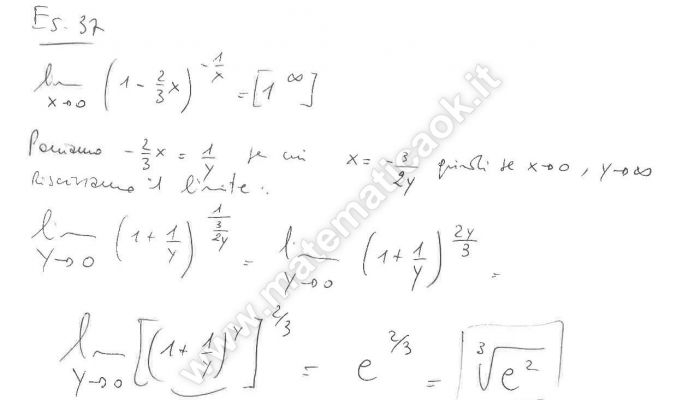 Es. 37
lim x→0 (1 - 2/3 x)^(-1/x) = [1^∞]
Poniamo -2/3 x = 1/y per cui x = -3/2y quindi se x→0, y→∞
Riscriviamo il limite:
lim y→0 (1 + 1/y)^(1/(3/2y)) = lim y→0 (1 + 1/y)^(2y/3) =
lim y→0 [(1 + 1/y)^y]^(2/3) = e^(2/3) = ∛e²
www.matematicaok.it